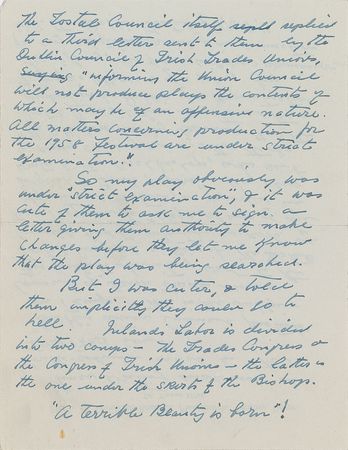 The Tostal Council itself replied
to a third letter sent to them by the
Dublin Council of Irish Trades Unions,
"informing the Union Council
will not produce plays the contents of
which may be of an offensive nature.
All matters concerning production for
the 1958 festival are under strict
examination."
So my play, obviously, was
under "strict examination", & it was
cute of them to ask me to sign a
letter giving them authority to make
changes before they let me know
that the play was being searched.
But I was cuter, & told
them implicitly they could go to
hell. Ireland's Labor is divided
into two camps — The Trades Congress &
the Congress of Irish Unions — the latter is
the one under the skirts of the Bishops.
"A Terrible Beauty is born"!